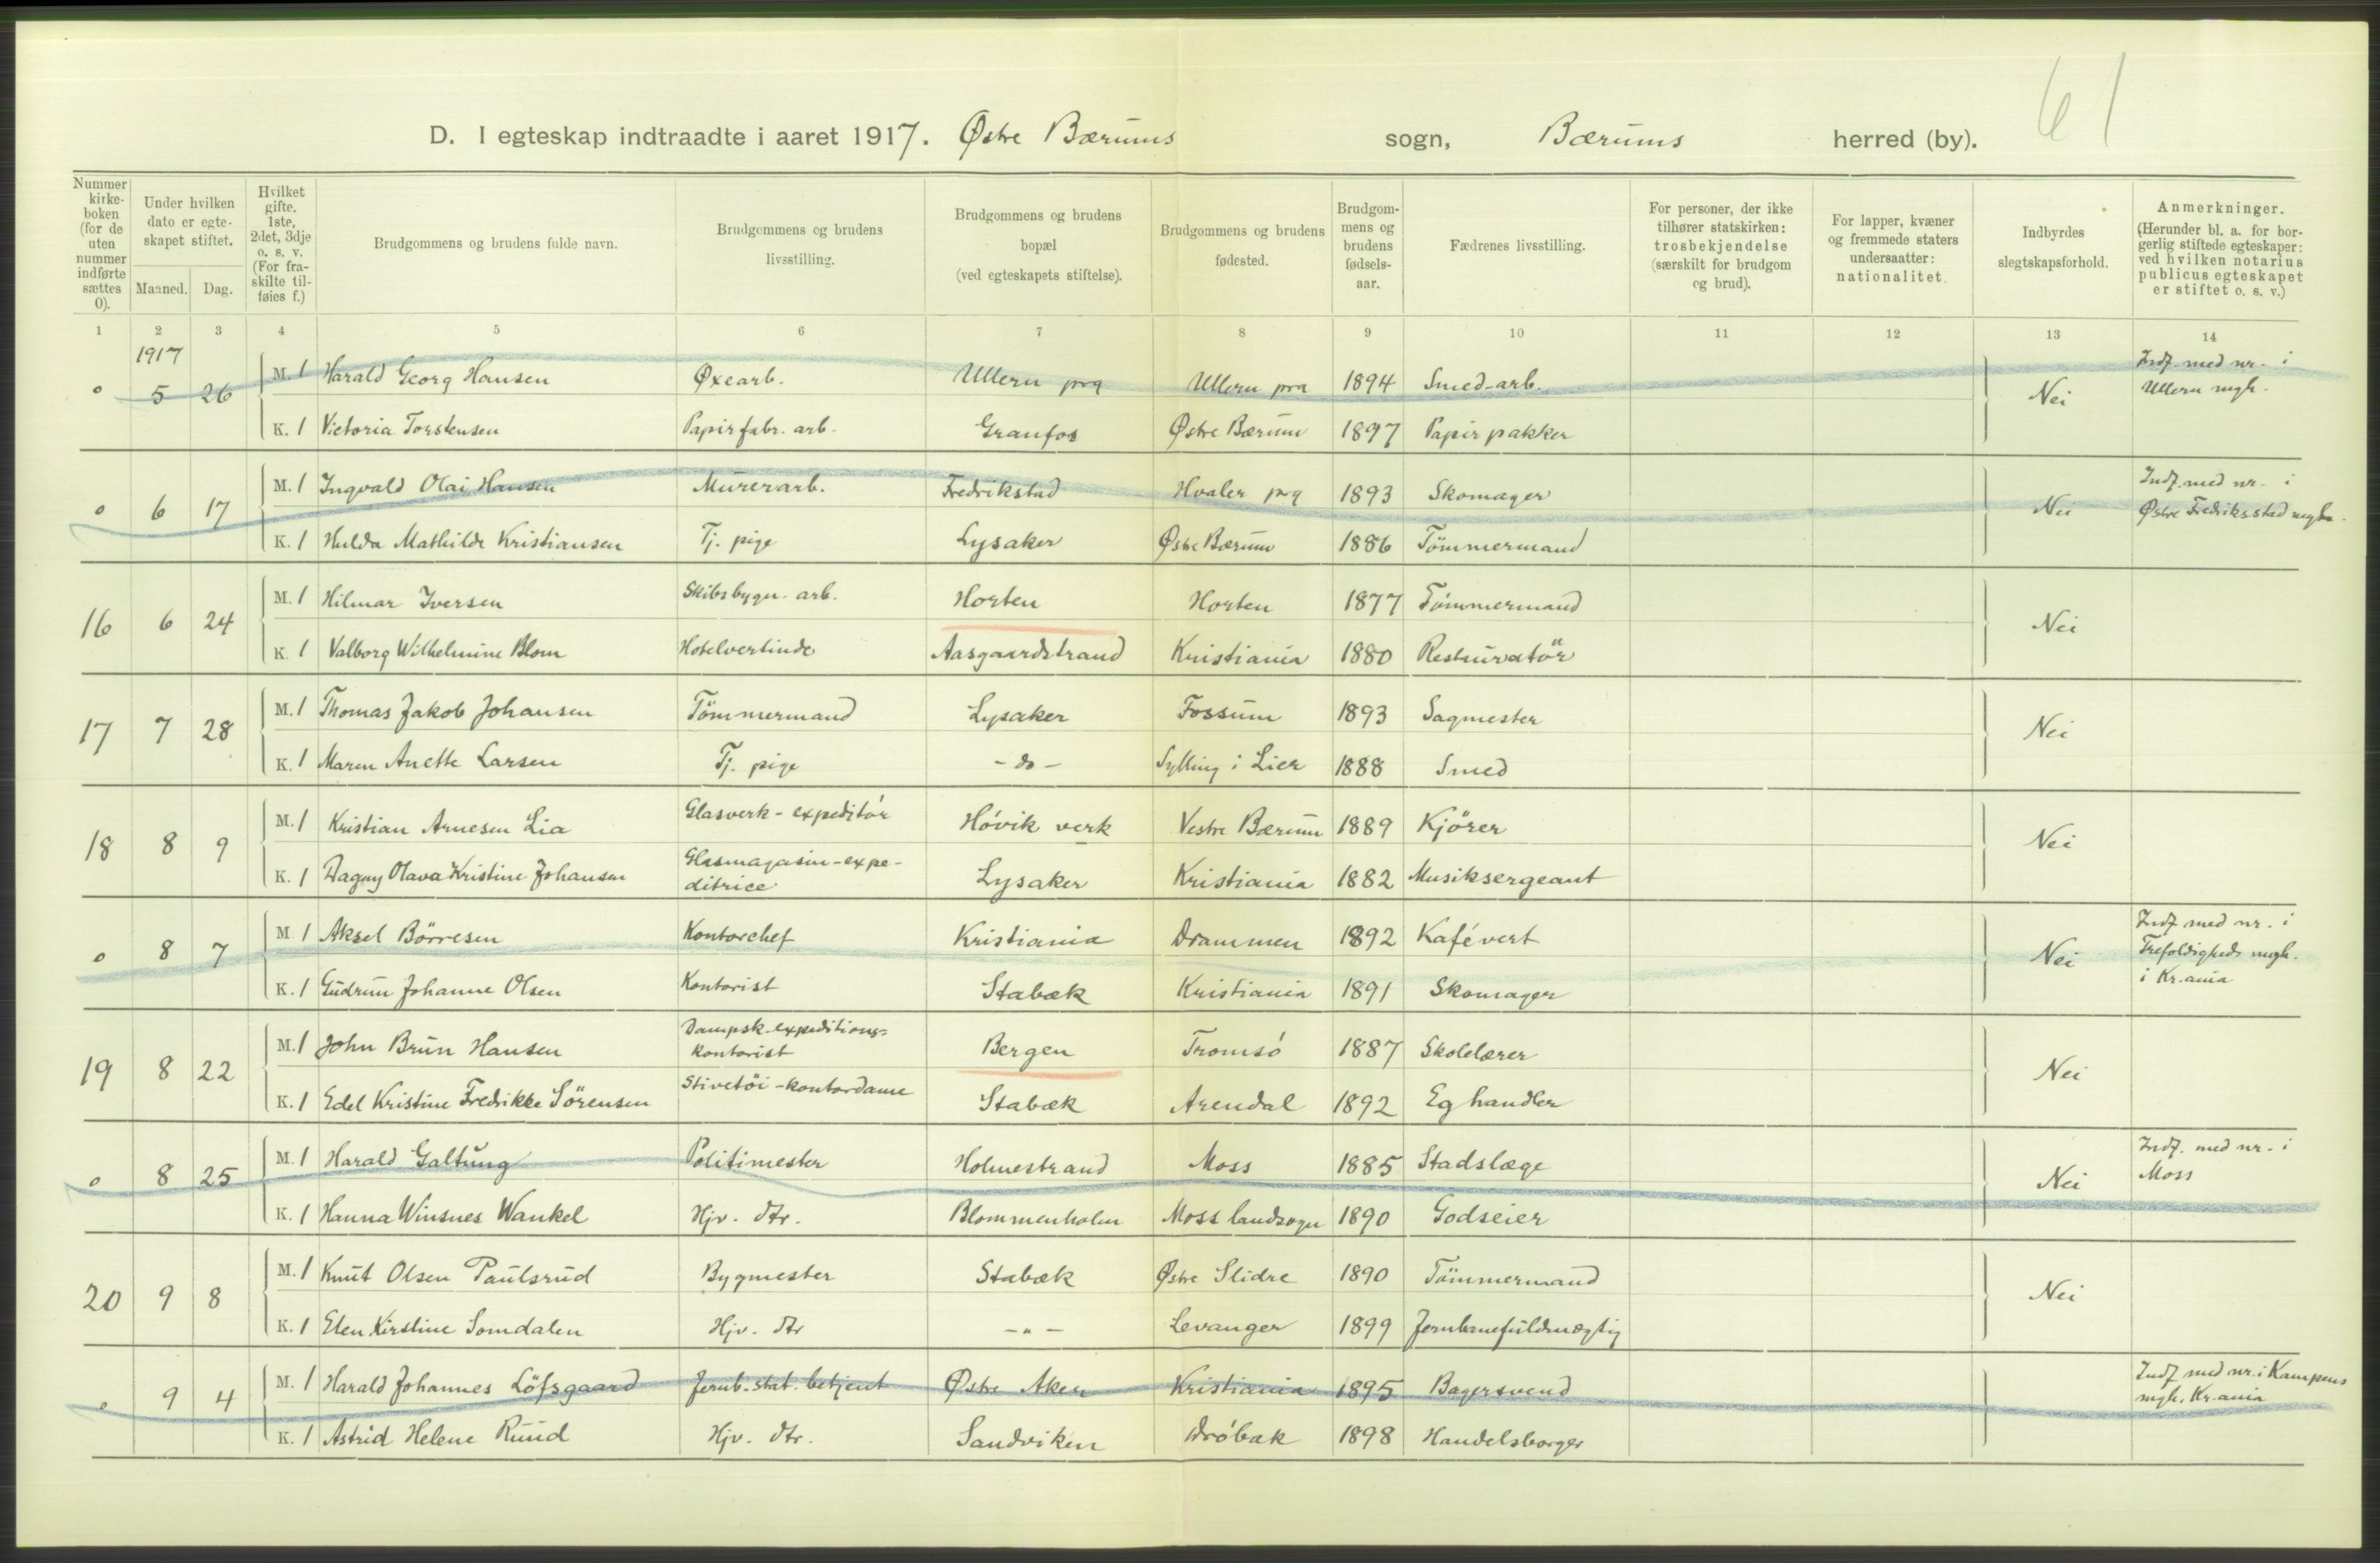 61
D. I egteskap indtraadte i aaret 1917. Østre Bærums sogn, Bærums herred (by).
Nummer kirkeboken (for de uten nummer indførte sættes 0).
Under hvilken dato er egteskapet stiftet.
Maaned. Dag.
Hvilket gifte. 1ste, 2det, 3dje o. s. v. (For fraskilte tilføies f.)
Brudgommens og brudens fulde navn.
Brudgommens og brudens livsstilling.
Brudgommens og brudens bopæl (ved egteskapets stiftelse).
Brudgommens og brudens fødested.
Brudgommens og brudens fødselsaar.
Fædrenes livsstilling.
For personer, der ikke tilhører statskirken: trosbekjendelse (særskilt for brudgom og brud).
For lapper, kvæner og fremmede staters undersaatter: nationalitet.
Indbyrdes slegtskapsforhold.
Anmerkninger. (Herunder bl. a. for borgerlig stiftede egteskaper: ved hvilken notarius publicus egteskapet er stiftet o. s. v.)
1 2 3 4 5 6 7 8 9 10 11 12 13 14
1917
0 5 26 M. 1 Harald Georg Hansen Øxearb. Ullern prg Ullern prg 1894 Smed-arb. Nei Indf. med nr. i Ullern mgh.
K. 1 Victoria Torstensen Papirfabr. arb. Granfos Østre Bærum 1897 Papirpakker
0 6 17 M. 1 Ingvald Olai Hansen Murerarb. Fredrikstad Hvaler prg 1893 Skomager Nei Indf. med nr. i Østre Fredriksstad mgh.
K. 1 Hulda Mathilde Kristiansen Tj. pige Lysaker Østre Bærum 1886 Tömmermand
16 6 24 M. 1 Hilmar Iversen Skibsbygn. arb. Horten Horten 1877 Tömmermand Nei
K. 1 Valborg Wilhelmine Blom Hotelvertinde Aasgaardstrand Kristiania 1880 Restauratör
17 7 28 M. 1 Thomas Jakob Johansen Tömmermand Lysaker Fossum 1893 Sagmester Nei
K. 1 Maren Anette Larsen Tj. pige - do - Sylling i Lier 1888 Smed
18 8 9 M. 1 Kristian Arnesen Lia Glasverk-expeditör Hövik verk Vestre Bærum 1889 Kjörer Nei
K. 1 Dagny Olava Kristine Johansen Glasmagasin-expeditrice Lysaker Kristiania 1882 Musiksergeant
0 8 7 M 1 Aksel Börresen Kontorchef Kristiania Drammen 1892 Kafévert Nei Indf med nr. i Trefoldigheds mgh. i Kr.ania
K. 1 Gudrun Johanne Olsen Kontorist Stabæk Kristiania 1891 Skomager
19 8 22 M. 1 John Brun Hansen Dampsk.expeditions-kontorist Bergen Tromsö 1887 Skolelærer Nei
K. 1 Edel Kristine Fredrikke Sörensen Stivetöi-kontordame Stabæk Arendal 1892 Eghandler
0 8 25 M. 1 Harald Galtung Politimester Holmestrand Moss 1885 Stadslæge Nei Indf. med nr. i Moss
K. 1 Hanna Winsnes Wankel Hjv. dtr. Blommenholm Moss landsogn 1890 Godseier
20 9 8 M. 1 Knut Olsen Paulsrud Bygmester Stabæk Østre Slidre 1890 Tömmermand Nei
K. 1 Elen Kirstine Somdalen Hjv. dtr - " - Levanger 1899 Jernbanefuldmægtig
0 9 4 M. 1 Harald Johannes Löfsgaard Jernb.stat.betjent Østre Aker Kristiania 1895 Bagersvend Indf med nr. i Kampens mgh. Kr.ania
K. 1 Astrid Helene Ruud Hjv. dtr. Sandviken Dröbak 1898 Handelsborger